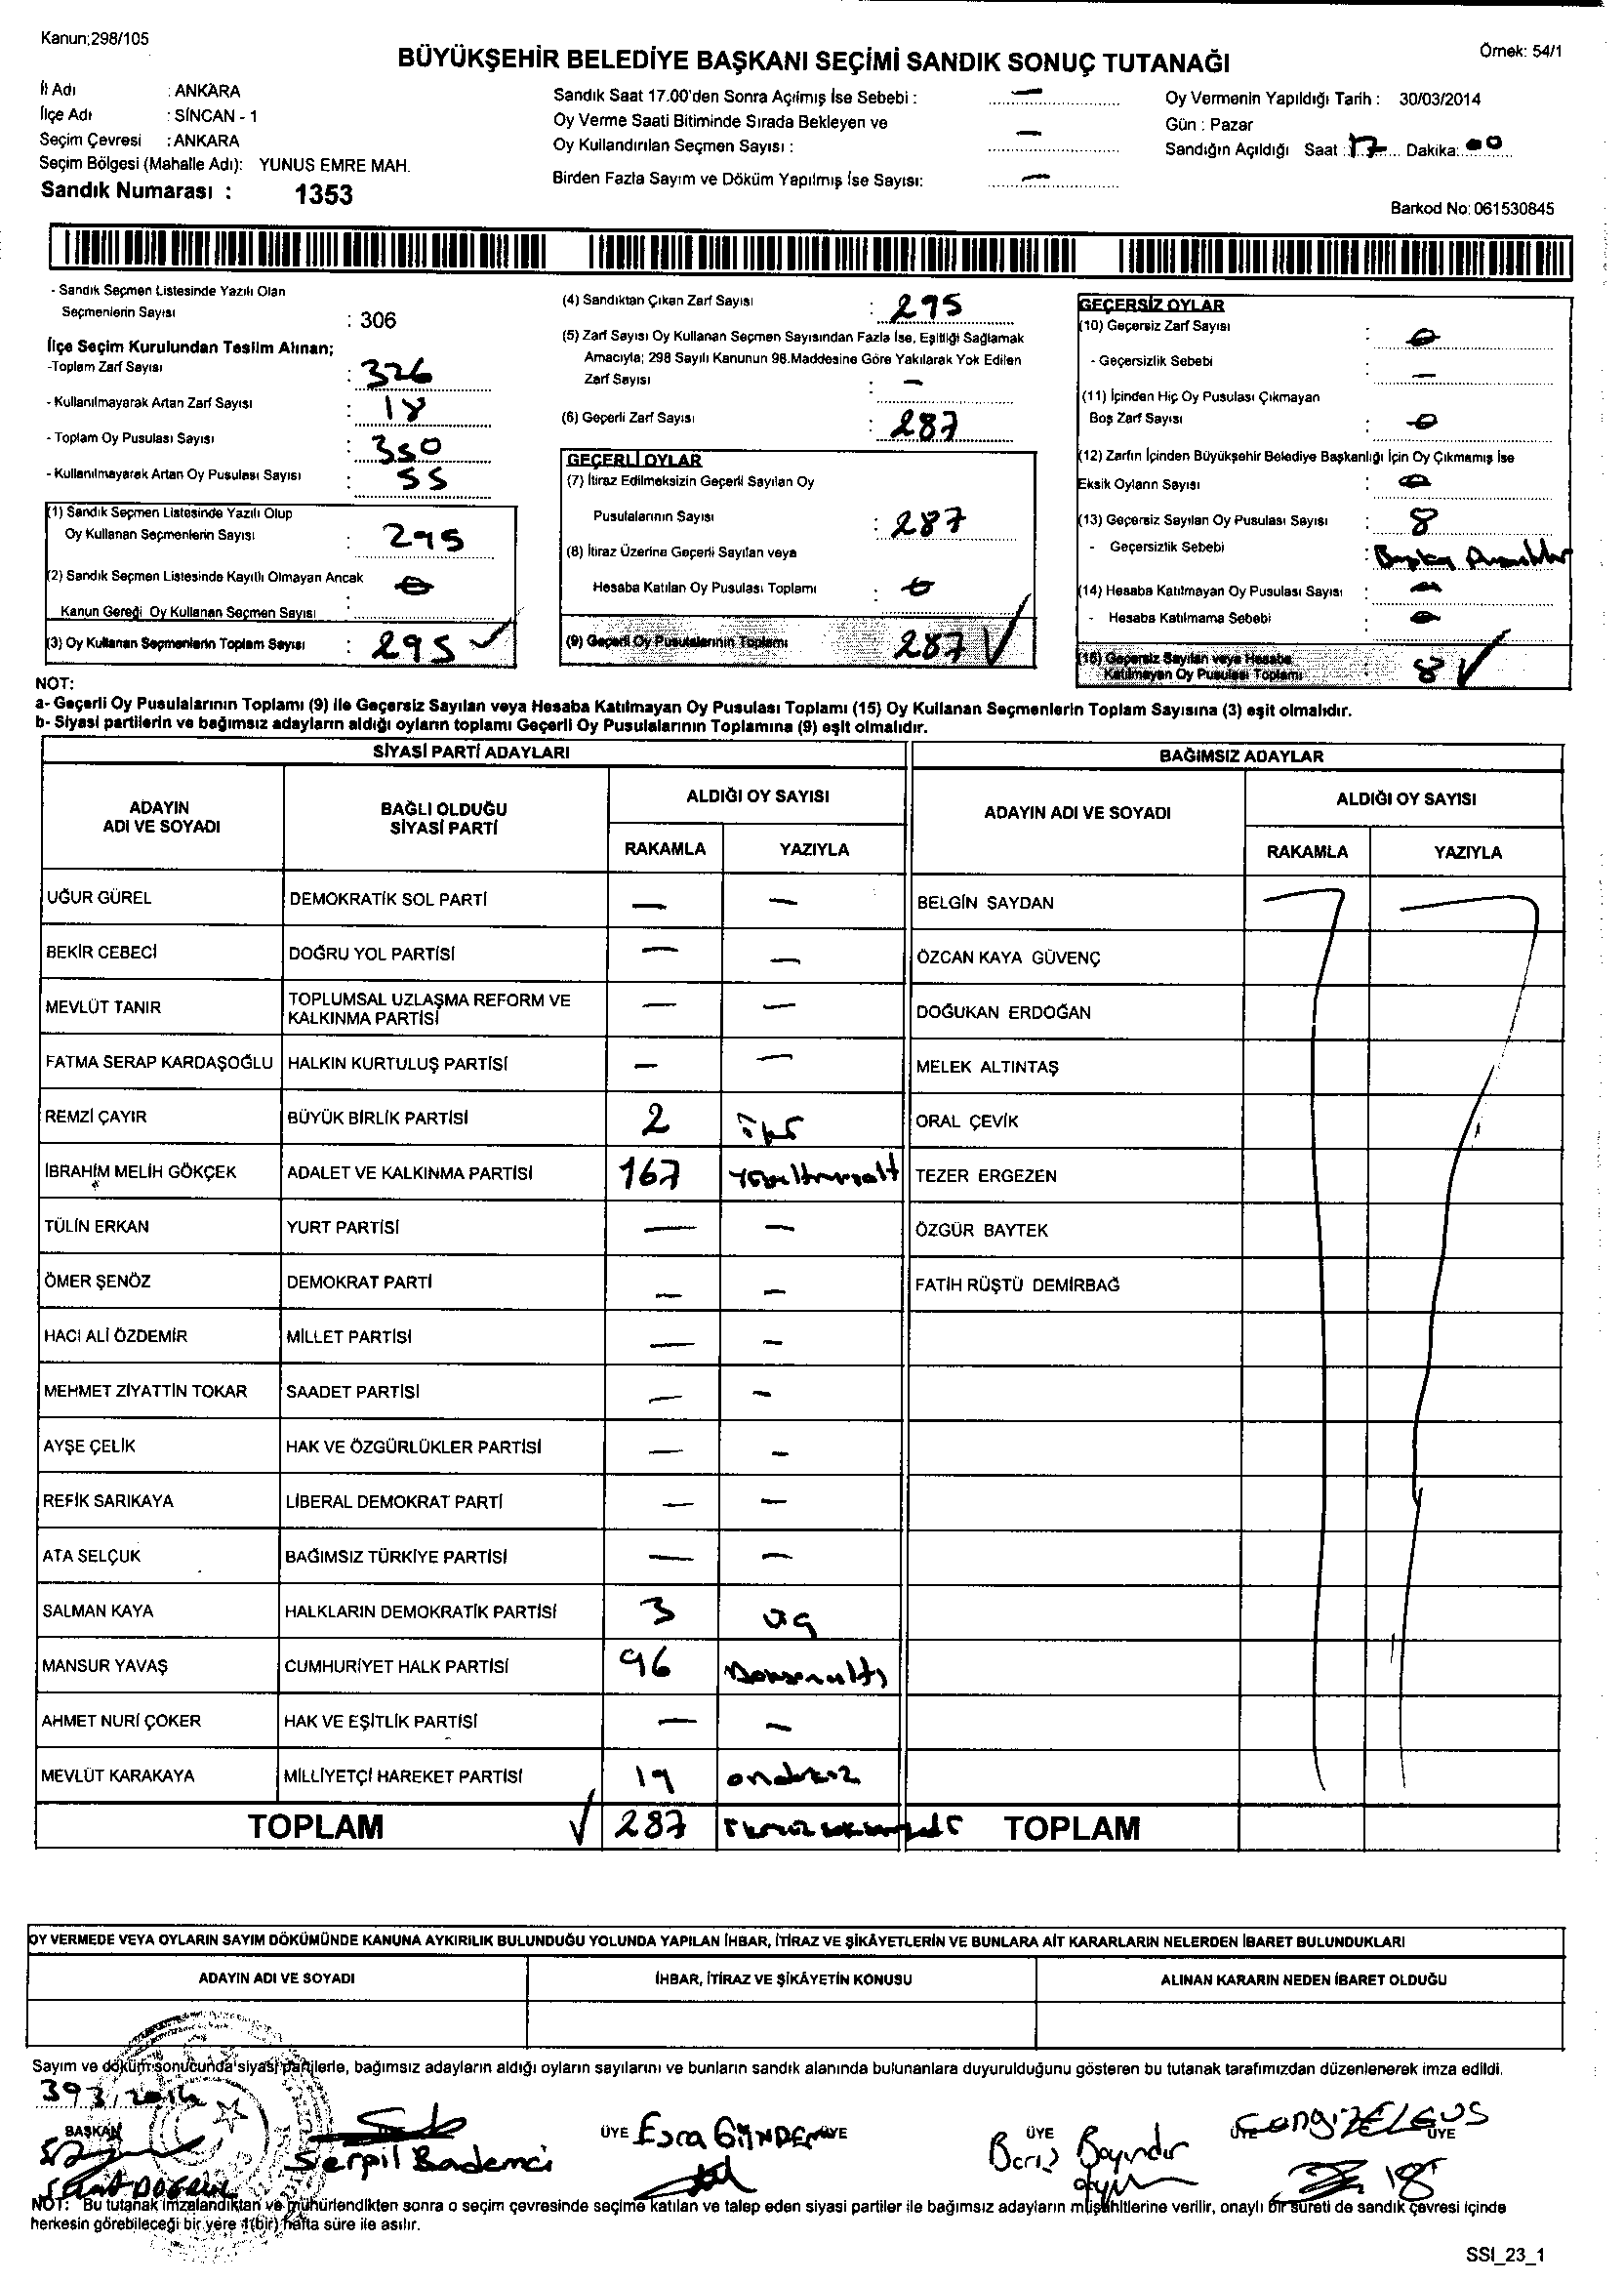 Kanun;298/105
Örnek: 54/1
BÜYÜKŞEHİR BELEDİYE BAŞKANI SEÇİMİ SANDIK SONUÇ TUTANAĞI
İl Adı : ANKARA
İlçe Adı : SİNCAN - 1
Seçim Çevresi : ANKARA
Seçim Bölgesi (Mahalle Adı): YUNUS EMRE MAH.
Sandık Numarası : 1353
Sandık Saat 17.00'den Sonra Açılmış İse Sebebi : —
Oy Verme Saati Bitiminde Sırada Bekleyen ve
Oy Kullandırılan Seçmen Sayısı : —
Birden Fazla Sayım ve Döküm Yapılmış İse Sayısı: —
Oy Vermenin Yapıldığı Tarih : 30/03/2014
Gün : Pazar
Sandığın Açıldığı Saat : 17 Dakika: 00
Barkod No: 061530845
- Sandık Seçmen Listesinde Yazılı Olan
Seçmenlerin Sayısı : 306
İlçe Seçim Kurulundan Teslim Alınan;
-Toplam Zarf Sayısı : 326
- Kullanılmayarak Artan Zarf Sayısı : 18
- Toplam Oy Pusulası Sayısı : 350
- Kullanılmayarak Artan Oy Pusulası Sayısı : 55
(1) Sandık Seçmen Listesinde Yazılı Olup
Oy Kullanan Seçmenlerin Sayısı : 295
(2) Sandık Seçmen Listesinde Kayıtlı Olmayan Ancak
Kanun Gereği Oy Kullanan Seçmen Sayısı : 0
(3) Oy Kullanan Seçmenlerin Toplam Sayısı : 295
(4) Sandıktan Çıkan Zarf Sayısı : 295
(5) Zarf Sayısı Oy Kullanan Seçmen Sayısından Fazla İse, Eşitliği Sağlamak
Amacıyla; 298 Sayılı Kanunun 98.Maddesine Göre Yakılarak Yok Edilen
Zarf Sayısı : —
(6) Geçerli Zarf Sayısı : 287
GEÇERLİ OYLAR
(7) İtiraz Edilmeksizin Geçerli Sayılan Oy
Pusulalarının Sayısı : 287
(8) İtiraz Üzerine Geçerli Sayılan veya
Hesaba Katılan Oy Pusulası Toplamı : 0
(9) Geçerli Oy Pusulalarının Toplamı 287
GEÇERSİZ OYLAR
(10) Geçersiz Zarf Sayısı : 0
- Geçersizlik Sebebi : —
(11) İçinden Hiç Oy Pusulası Çıkmayan
Boş Zarf Sayısı : 0
(12) Zarfın İçinden Büyükşehir Belediye Başkanlığı İçin Oy Çıkmamış İse
Eksik Oyların Sayısı : 0
(13) Geçersiz Sayılan Oy Pusulası Sayısı : 8
- Geçersizlik Sebebi :
(14) Hesaba Katılmayan Oy Pusulası Sayısı :
- Hesaba Katılmama Sebebi :
(15) Geçersiz Sayılan veya Hesaba
Katılmayan Oy Pusulası Toplamı : 8
NOT:
a- Geçerli Oy Pusulalarının Toplamı (9) ile Geçersiz Sayılan veya Hesaba Katılmayan Oy Pusulası Toplamı (15) Oy Kullanan Seçmenlerin Toplam Sayısına (3) eşit olmalıdır.
b- Siyasi partilerin ve bağımsız adayların aldığı oyların toplamı Geçerli Oy Pusulalarının Toplamına (9) eşit olmalıdır.
SİYASİ PARTİ ADAYLARI
BAĞIMSIZ ADAYLAR
ADAYIN ADI VE SOYADI
BAĞLI OLDUĞU SİYASİ PARTİ
ALDIĞI OY SAYISI
RAKAMLA YAZIYLA
ADAYIN ADI VE SOYADI
ALDIĞI OY SAYISI
RAKAMLA YAZIYLA
UĞUR GÜREL DEMOKRATİK SOL PARTİ — — BELGİN SAYDAN
BEKİR CEBECİ DOĞRU YOL PARTİSİ — — ÖZCAN KAYA GÜVENÇ
MEVLÜT TANIR TOPLUMSAL UZLAŞMA REFORM VE KALKINMA PARTİSİ — — DOĞUKAN ERDOĞAN
FATMA SERAP KARDAŞOĞLU HALKIN KURTULUŞ PARTİSİ — — MELEK ALTINTAŞ
REMZİ ÇAYIR BÜYÜK BİRLİK PARTİSİ 2 iki ORAL ÇEVİK
İBRAHİM MELİH GÖKÇEK ADALET VE KALKINMA PARTİSİ 167 TEZER ERGEZEN
TÜLİN ERKAN YURT PARTİSİ — — ÖZGÜR BAYTEK
ÖMER ŞENÖZ DEMOKRAT PARTİ — — FATİH RÜŞTÜ DEMİRBAĞ
HACI ALİ ÖZDEMİR MİLLET PARTİSİ — —
MEHMET ZİYATTİN TOKAR SAADET PARTİSİ — —
AYŞE ÇELİK HAK VE ÖZGÜRLÜKLER PARTİSİ — —
REFİK SARIKAYA LİBERAL DEMOKRAT PARTİ — —
ATA SELÇUK BAĞIMSIZ TÜRKİYE PARTİSİ — —
SALMAN KAYA HALKLARIN DEMOKRATİK PARTİSİ 3 üç
MANSUR YAVAŞ CUMHURİYET HALK PARTİSİ 96 Doksanaltı
AHMET NURİ ÇOKER HAK VE EŞİTLİK PARTİSİ — —
MEVLÜT KARAKAYA MİLLİYETÇİ HAREKET PARTİSİ 19 ondokuz
TOPLAM 287 TOPLAM
OY VERMEDE VEYA OYLARIN SAYIM DÖKÜMÜNDE KANUNA AYKIRILIK BULUNDUĞU YOLUNDA YAPILAN İHBAR, İTİRAZ VE ŞİKÂYETLERİN VE BUNLARA AİT KARARLARIN NELERDEN İBARET BULUNDUKLARI
ADAYIN ADI VE SOYADI İHBAR, İTİRAZ VE ŞİKÂYETİN KONUSU ALINAN KARARIN NEDEN İBARET OLDUĞU
Sayım ve döküm sonucunda siyasi partilerle, bağımsız adayların aldığı oyların sayılarını ve bunların sandık alanında bulunanlara duyurulduğunu gösteren bu tutanak tarafımızdan düzenlenerek imza edildi.
BAŞKAN ÜYE ÜYE ÜYE ÜYE ÜYE
Serpil Bademci Esra
NOT: Bu tutanak imzalandıktan ve mühürlendikten sonra o seçim çevresinde seçime katılan ve talep eden siyasi partiler ile bağımsız adayların müşahitlerine verilir, onaylı bir sureti de sandık çevresi içinde
herkesin görebileceği bir yere 1(bir) hafta süre ile asılır.
SSI_23_1